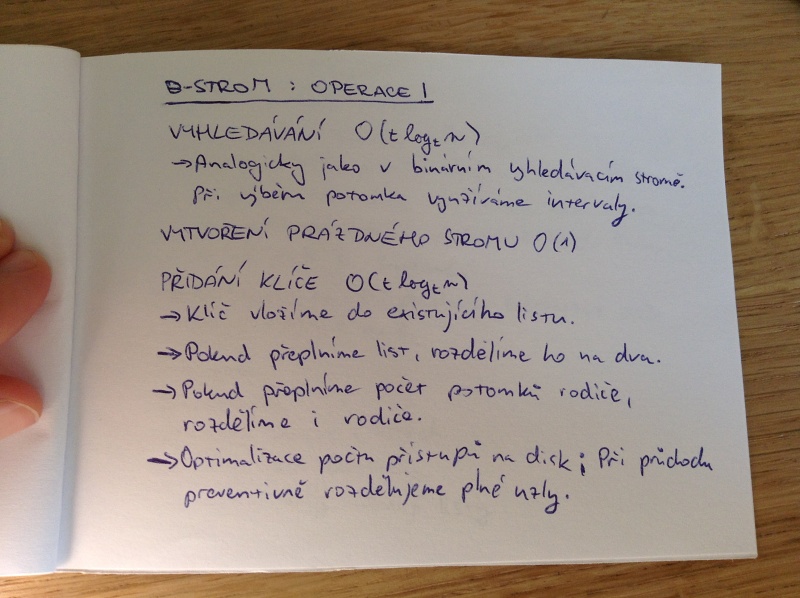 B-STROM : OPERACE I
VYHLEDÁVÁNÍ O(t log_t n)
→Analogicky jako v binárním vyhledávacím stromě.
Při výběru potomka využíváme intervaly.
VYTVOŘENÍ PRÁZDNÉHO STROMU O(1)
PŘIDÁNÍ KLÍČE O(t log_t n)
→Klíč vložíme do existujícího listu.
→Pokud přeplníme list, rozdělíme ho na dva.
→Pokud přeplníme počet potomků rodiče,
rozdělíme i rodiče.
→Optimalizace počtu přístupů na disk; Při průchodu
preventivně rozdělujeme plné uzly.